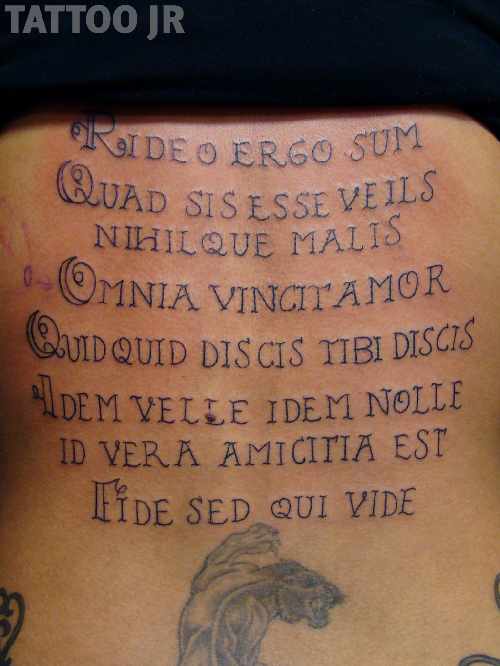 TATTOO JR
RIDEO ERGO SUM
QUAD SIS ESSE VEILS
NIHILQUE MALIS
OMNIA VINCIT AMOR
QUIDQUID DISCIS TIBI DISCIS
IDEM VELLE IDEM NOLLE
ID VERA AMICITIA EST
FIDE SED QUI VIDE